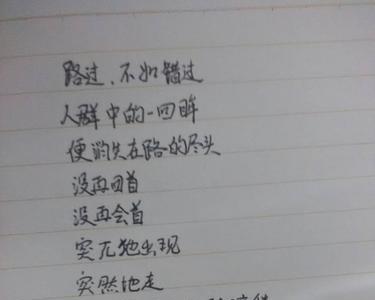 路过、不如错过
人群中的一回眸
便消失在路的尽头
没再回首
没再会首
突兀地出现
突然地走